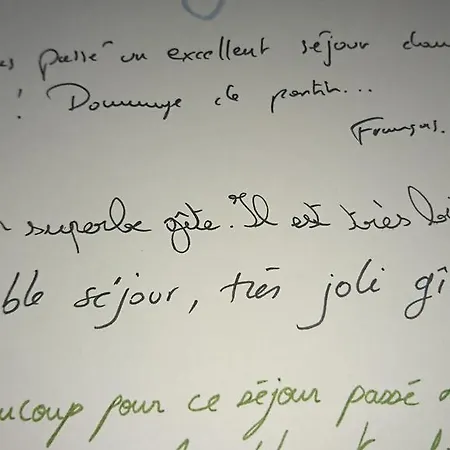 passé un excellent séjour dans
! Dommage de partir...
François.
superbe gîte. Il est très bi
ble séjour, très joli gî
ucoup pour ce séjour passé